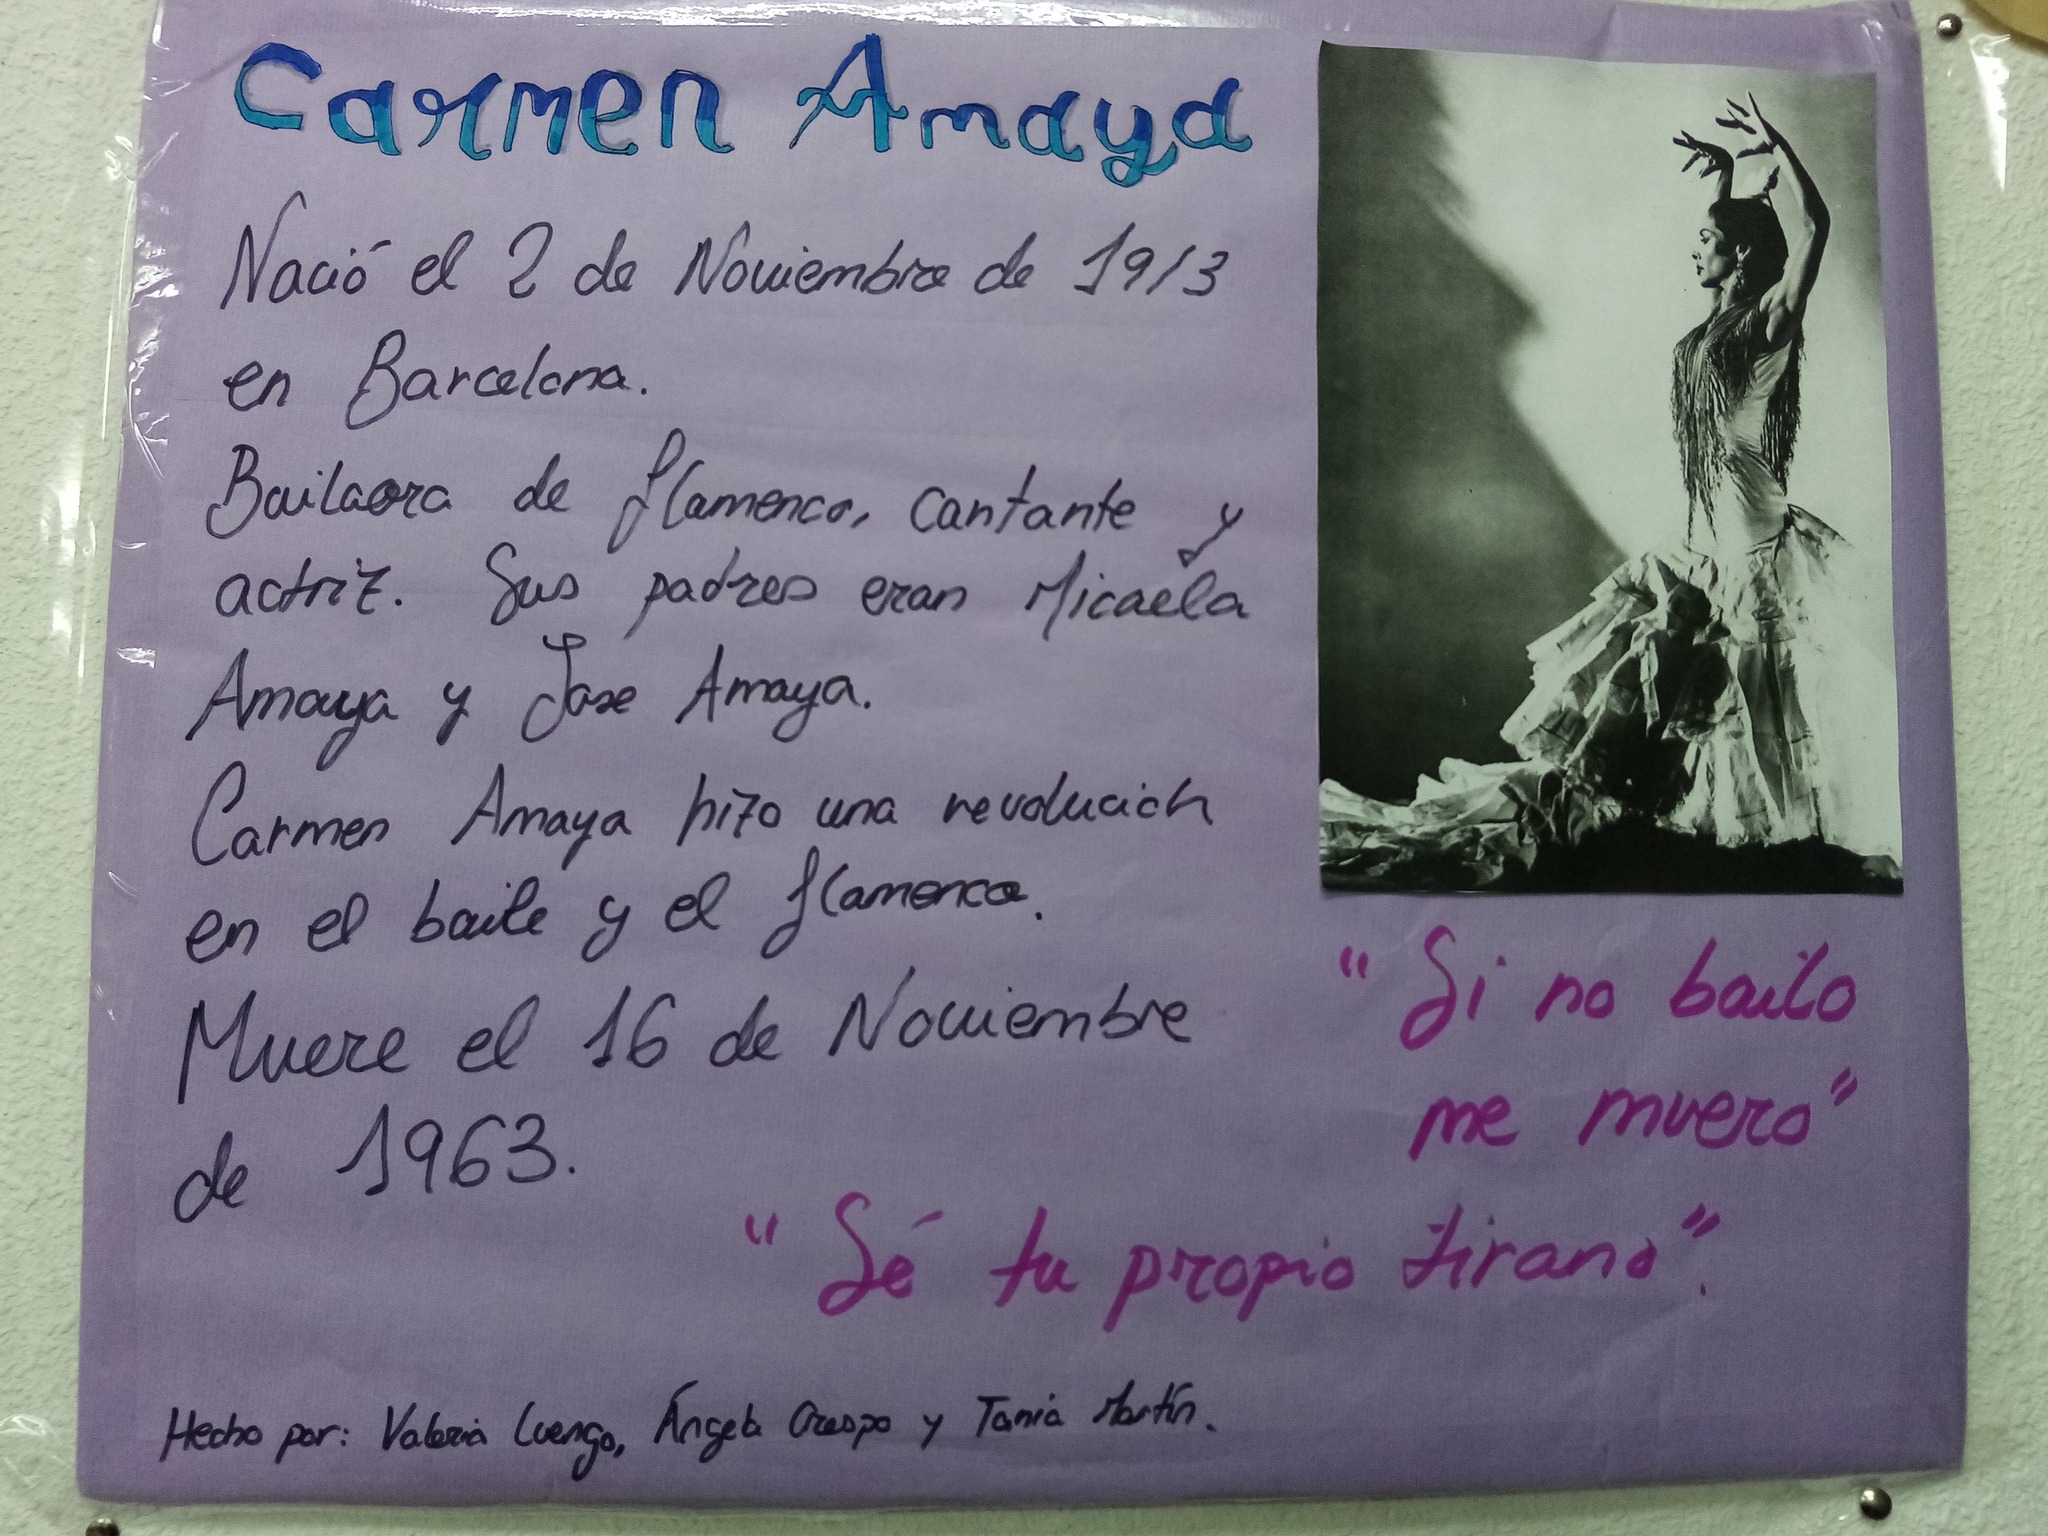 Carmen Amaya
Nació el 2 de Noviembre de 1913
en Barcelona.
Bailaora de flamenco, cantante y
actriz. Sus padres eran Micaela
Amaya y Jose Amaya.
Carmen Amaya hizo una revolución
en el baile y el flamenco.
Muere el 16 de Noviembre
de 1963.
"Si no bailo
me muero"
"Sé tu propio tirano".
Hecho por: Valeria Luengo, Ángela Crespo y Tania Martín.